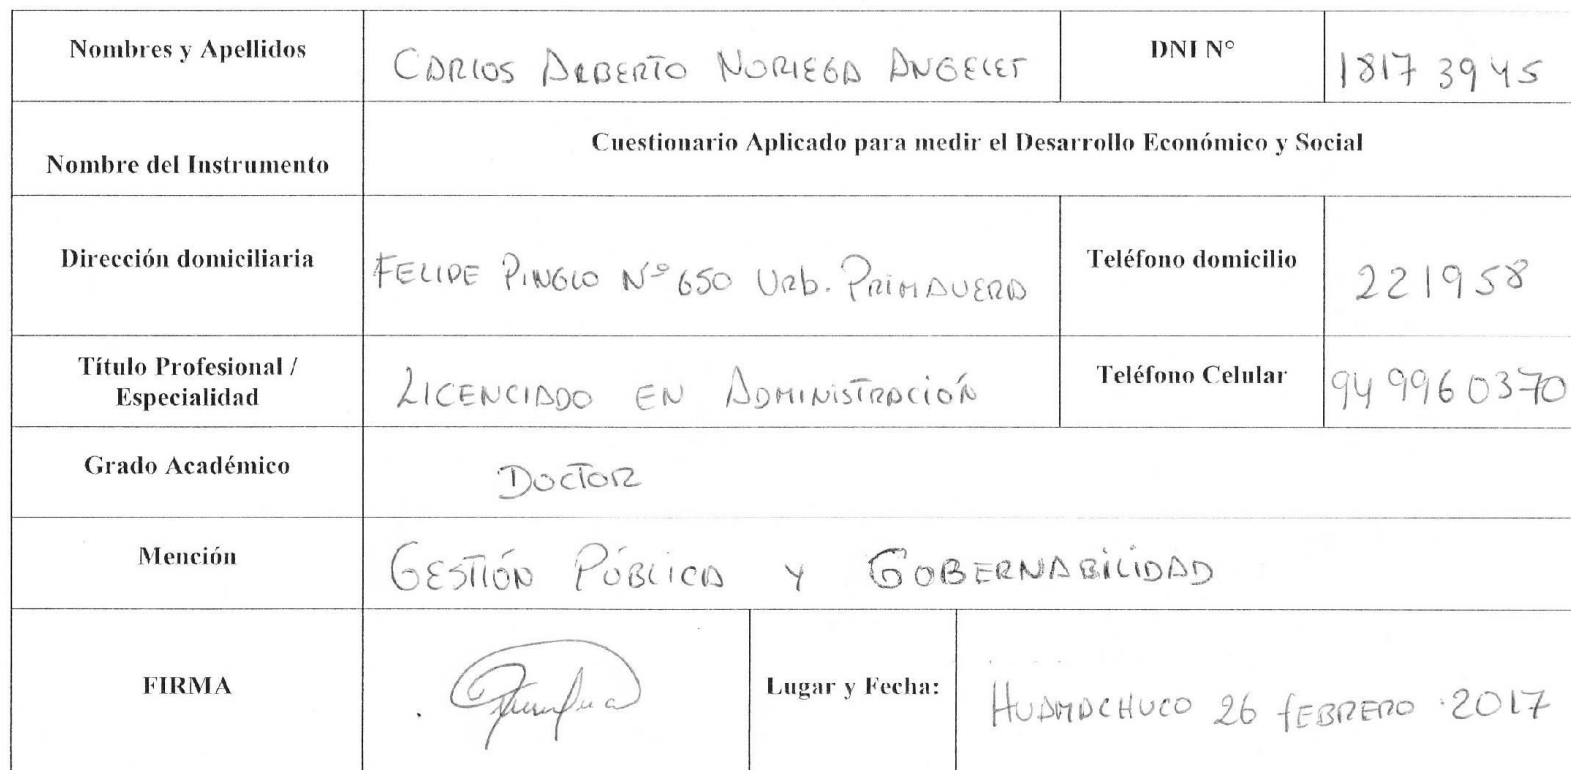 Nombres y Apellidos CARLOS ALBERTO NORIEGA ANGELES DNI N° 18173945
Nombre del Instrumento Cuestionario Aplicado para medir el Desarrollo Económico y Social
Dirección domiciliaria FELIPE PINGLO Nº 650 Urb. PRIMAVERA Teléfono domicilio 221958
Título Profesional /
Especialidad LICENCIADO EN ADMINISTRACIÓN Teléfono Celular 949960370
Grado Académico DOCTOR
Mención GESTIÓN PÚBLICA Y GOBERNABILIDAD
FIRMA Lugar y Fecha: HUAMACHUCO 26 FEBRERO 2017